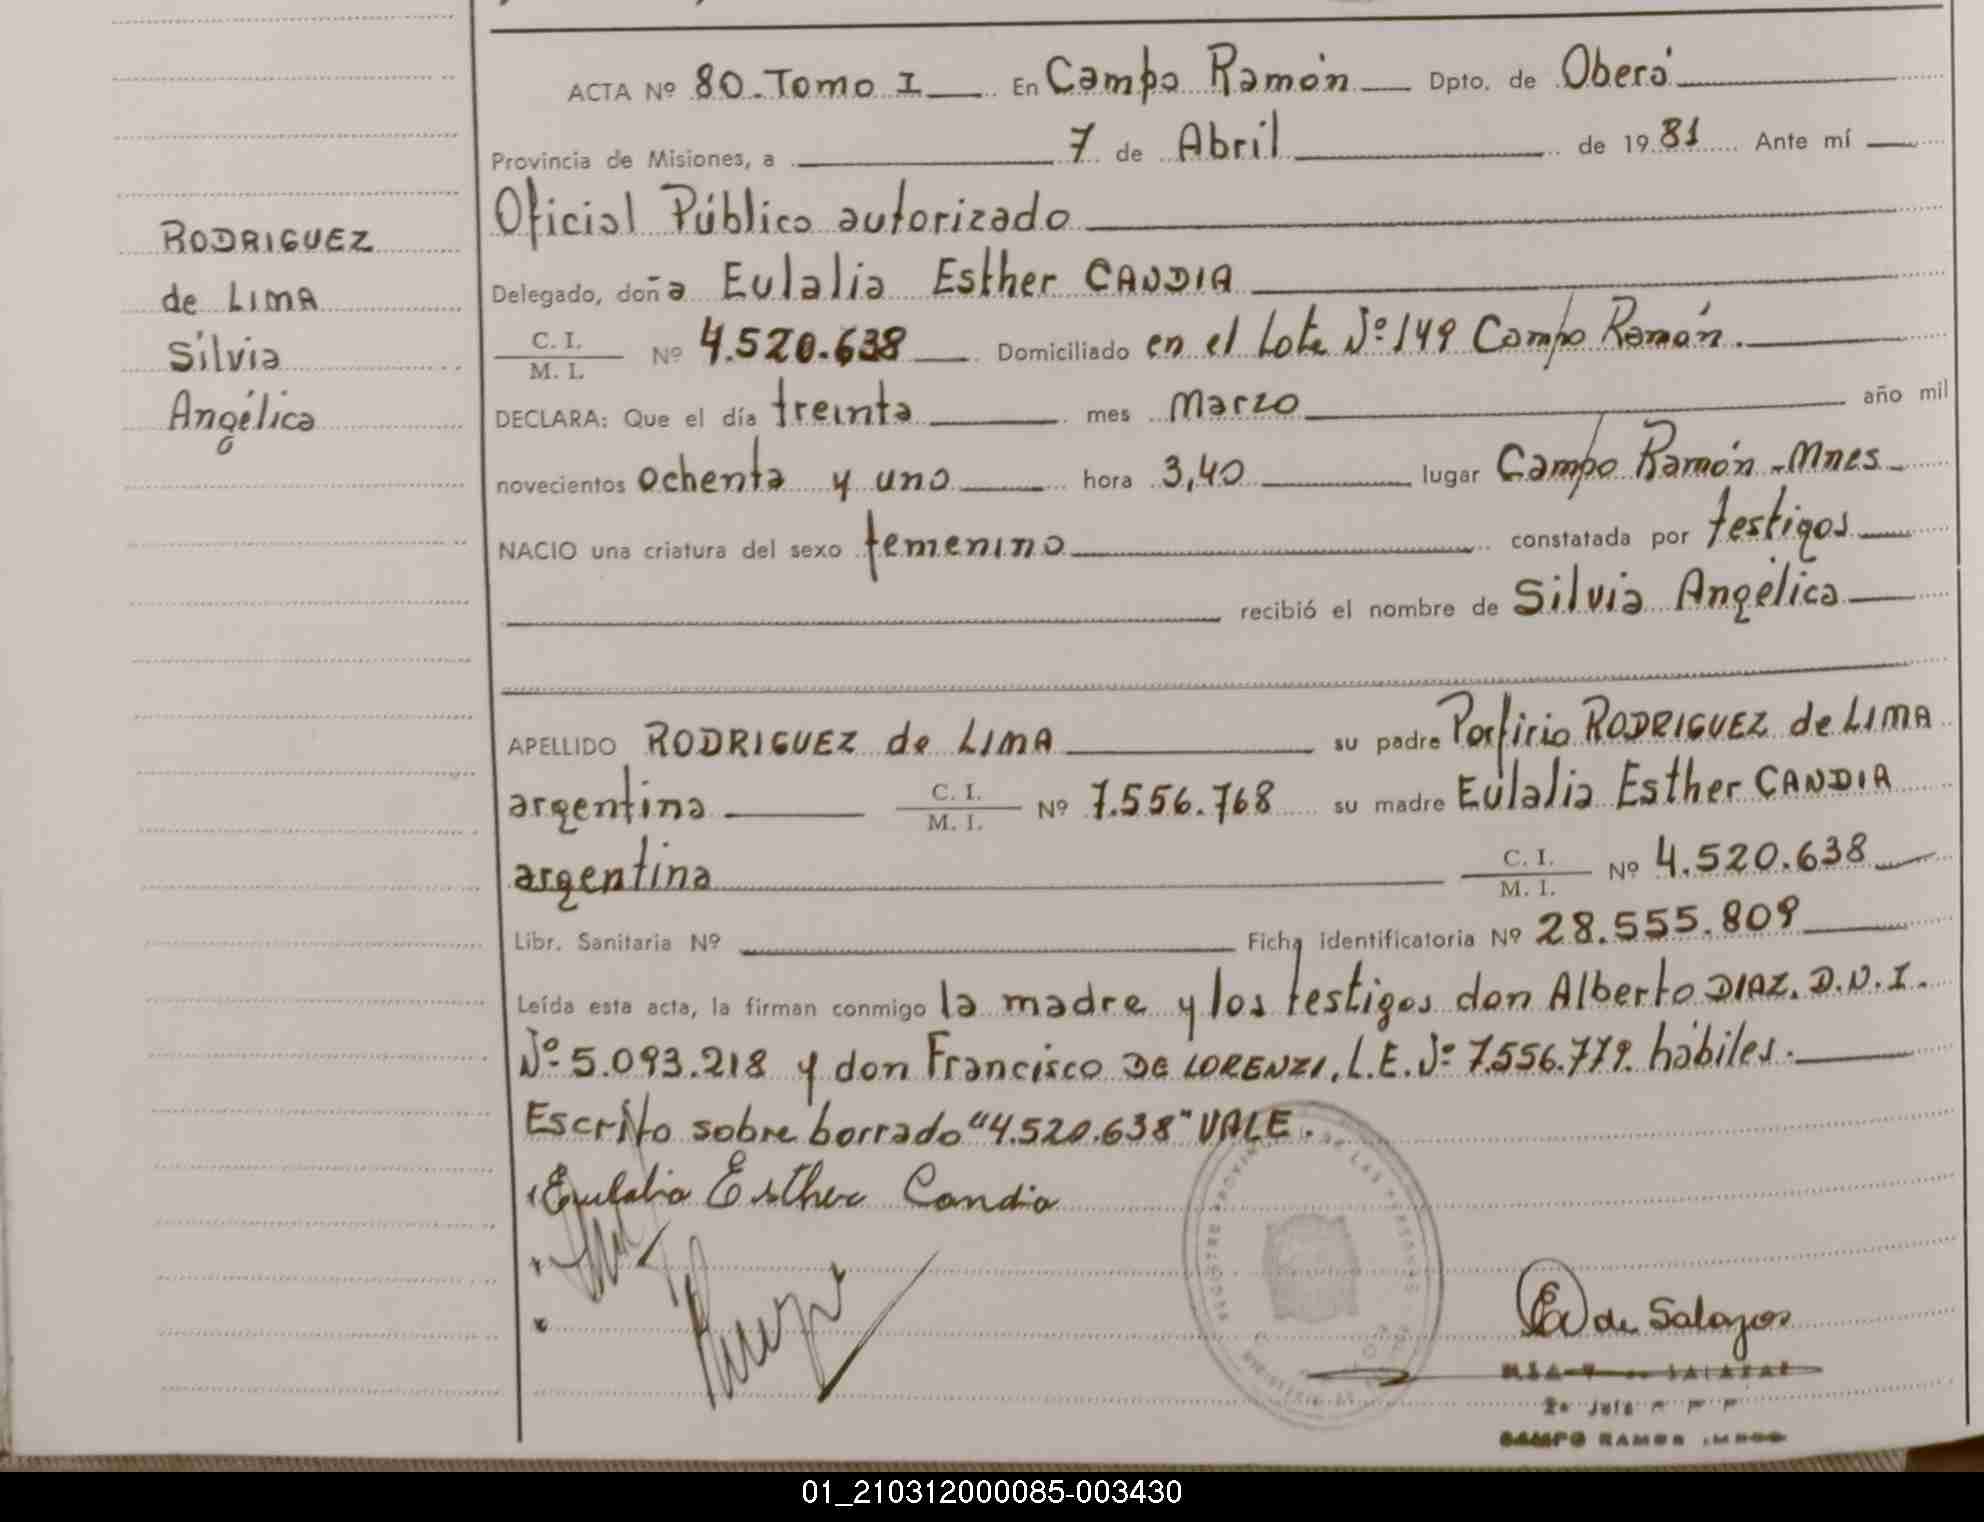 RODRIGUEZ
de LIMA
Silvia
Angélica
ACTA Nº 80. Tomo I En Campo Ramón Dpto. de Oberá
Provincia de Misiones, a 7 de Abril de 1981 Ante mí
Oficial Público autorizado
Delegado, doña Eulalia Esther CANDIA
C. I.
M. I.
Nº 4.520.638 Domiciliado en el Lote Nº 149 Campo Ramón.
DECLARA: Que el día treinta mes Marzo año mil
novecientos ochenta y uno hora 3,40 lugar Campo Ramón - Mnes
NACIO una criatura del sexo femenino constatada por testigos
recibió el nombre de Silvia Angélica
APELLIDO RODRIGUEZ de LIMA su padre Porfirio RODRIGUEZ de LIMA
argentina C. I. M. I. Nº 7.556.768 su madre Eulalia Esther CANDIA
argentina C. I. M. I. Nº 4.520.638
Libr. Sanitaria Nº Ficha identificatoria Nº 28.555.809
Leída esta acta, la firman conmigo la madre y los testigos don Alberto DIAZ. D.N.I.
Nº 5.093.218 y don Francisco DE LORENZI, L.E. Nº 7.556.779. hábiles.
Escrito sobre borrado "4.520.638" VALE.
Eulalia Esther Candia
de Salazar
SALAZAR
CAMPO RAMON
01_210312000085-003430